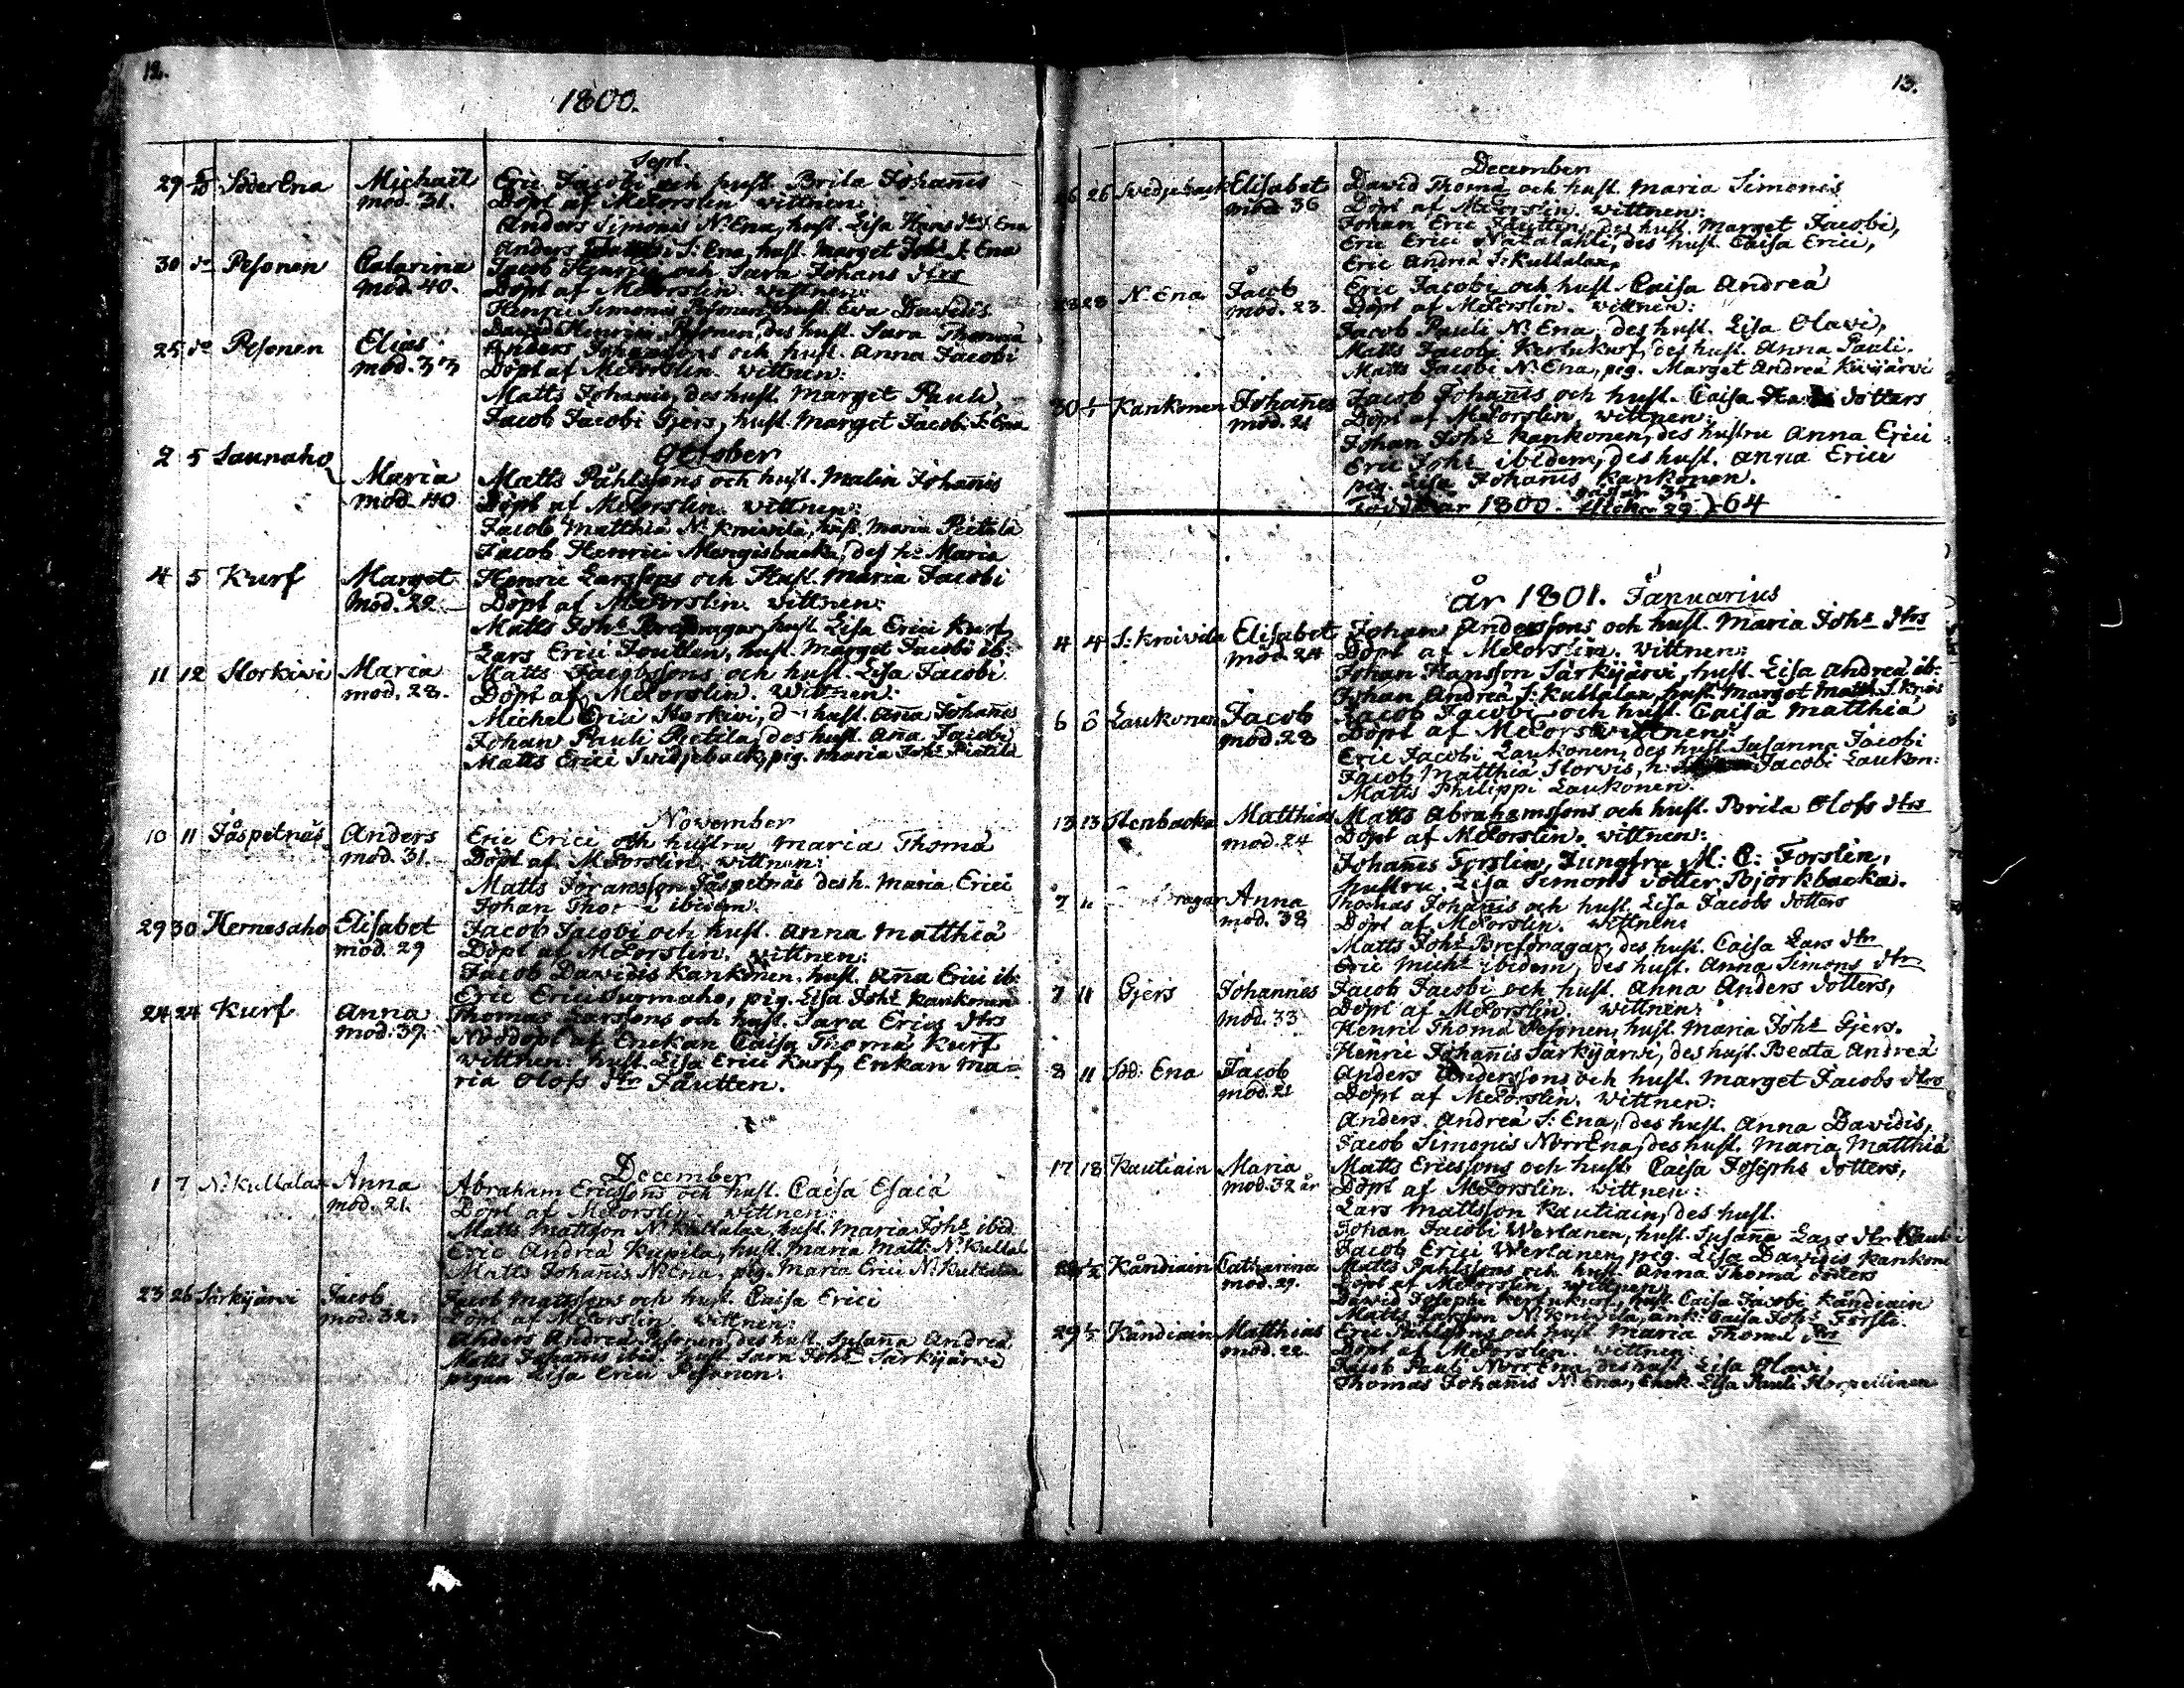 12.
1800.
Sept.
29 5/10 SöderEna Michaël Eric Jacobi och hust. Brita Johañis
mod. 31. Döpt af McForslin wittnen:
Anders Simonis N: Ena, hust. Lisa Hans dtr S. Ena
Anders S: Ena, hust. Marget Joh: S. Ena
30 do Pesonen Catarina Jacob Henrici och Sara Johans dtrs
mod. 40. Döpt af McForslin. wittnen:
Henric Simonis Pesonen, hust. Eva Davidis
David Henrici Pesonen, des hust. Sara Thomæ
25 do Pesonen Elias Anders Johanssons och hust. Anna Jacobi
mod. 33 Döpt af McForslin. wittnen:
Matts Johanis, des hust. Marget Pauli,
Jacob Jacobi Gjers, hust. Marget Jacobi S: Ena
October
2 5 Saunaho Maria Matts Påhlssons och hust. Malin Johañis
mod. 40 Döpt af McForslin. wittnen:
Jacob Matthiæ N. Knivila, hust. Maria Pietilä
Jacob Henrici Mengisbacka, des h: Maria
4 5 Kurf Marget Henric Larssons och Hust. Maria Jacobi
mod. 29. Döpt af McForslin. wittnen:
Matts Joh: Brefdragar, hust. Lisa Erici Kurf,
Lars Erici Joutten, hust. Marget Jacobi ib:
11 12 Storkivi Maria Matts Jacobssons och hust. Lisa Jacobi
mod. 28. Döpt af McForslin. wittnen:
Michel Erici Storkivi, d hust. Aña Johañis
Johan Pauli Pietila, des hust. Aña Jacobi
Matts Erici Svidjeback, pig. Maria Joh: Pietila
November
10 11 Jåspetnäs Anders Eric Erici och hustru Maria Thomæ
mod. 31. Döpt af McForslin. wittnen:
Matts Jöransson Jåspetnäs des h. Maria Erici
Johan ibidem.
29 30 Hernesaho Elisabet Jacob Jacobi och hust. Anna Matthiæ
mod. 29 Döpt af McForslin. wittnen:
Jacob Davidis Kankonen, hust. Aña Erici ib:
Eric Erici Surmaho, pig. Lisa Joh: Kankonen
24 24 Kurf Anna Thomas Larssons och hust. Sara Erics dtrs
mod: 37. Nöddöpt af Enckan Caisa Thomæ Kurf
wittnen: hust. Lisa Erici Kurf, Enkan Ma=
ria Olofs dtr Jäutten.
December
1 7 N: Kullalax Anna Abraham Ericssons och hust. Caisa Esaiæ
mod. 21. Döpt af McForslin. wittnen:
Matts Mattsson N: Kullalax, hust. Maria Joh: ibid.
Eric Andreæ hust. Maria Matt: N: Kullal
Matts Johañis N: Ena. pig. Maria Erici N: Kullalax
23 26 Särkijärvi Jacob Jacob Mattssons och hust. Caisa Erici
mod. 32. Döpt af McForslin. wittnen:
Anders Andreæ Pesonen, des hust. Susaña Andreæ
Matts Johañis ibid. hust. Sara Joh: Särkijärvi
pigan Lisa Erici Pesonen.
13.
December
26 26 Svidjeback Elisabet David Thomæ och hust. Maria Simonis
mod. 36 Döpt af McForslin. wittnen:
Johan Eric Jäutten, des hust. Marget Jacobi,
Eric Erici des hust. Caisa Erici,
Eric Andreæ S: Kullalax,
28 28 N. Ena Jacob Eric Jacobi och hust. Caisa Andreæ
mod. 23. Döpt af McForslin. wittnen:
Jacob Pauli N. Ena, des hust. Lisa Olavi,
Matts Jacobi Kertukurf, des hust. Anna Pauli.
Matts Jacobi N: Ena, pig. Marget Andreæ
30 1/1 Kankonen Johañes Jacob Johañis och hust. Caisa dotters
mod. 21 Döpt af McForslin. wittnen:
Johan Joh: Kankonen, des hustru Anna Erici
Eric Joh: ibidem, des hust. Anna Erici
pig. Lisa Johañis Kankonen.
år 1800. gossar 35 flickor 29 } 64
år 1801. Januarius
4 4 S: Kroivila Elisabet Johan Anderssons och hust. Maria Joh: dtrs
mod. 24 Döpt af McForslin. wittnen:
Johan Hansson Särkijärvi, hust. Lisa Andreæ ib:
Johan Andreæ S: Kullalax, hust. Marget Matth:
6 6 Laukonen Jacob Jacob Jacobi och hust. Caisa Matthiæ
mod. 28 Döpt af McForslin. wittnen:
Eric Jacobi Laukonen, des hust. Susanna Jacobi
Jacob Matthiæ h: Jacobi Laukon:
Matts Philippi Laukonen.
13 13 Stenbacka Matthias Matts Abrahamssons och hust. Brita Olofs dtrs
mod. 24 Döpt af McForslin. wittnen:
Johañes Forslin, Jungfru M: C: Forslin,
hustru. Lisa Simons dotter Björkbacka.
7 11 Anna Thomas Johañis och hust. Lisa Jacobs dotters
mod. 38 Döpt af McForslin. wittnen:
Matts Joh: Brefdragar, des hust. Caisa Lars dtr
Eric Mich: ibidem, des hust. Anna Simons dtr
7 11 Gjers Johannes Jacob Jacobi och hust. Anna Anders dotters,
mod. 33 Döpt af McForslin. wittnen:
Henric Thomæ Pesonen, hust. Maria Joh: Gjers.
Henric Johañis Särkijärvi, des hust. Beata Andreæ
8 11 Söd: Ena Jacob Anders Anderssons och hust. Marget Jacobs dtrs
mod. 21 Döpt af McForslin. wittnen:
Anders Andreæ S: Ena, des hust. Anna Davidis,
Jacob Simonis NorrEna, des hust. Maria Matthiæ
17 18 Kautiain Maria Matts Ericssons och hust. Caisa Josephs dotters,
mod. 32 år Döpt af McForslin. wittnen:
Lars Mattsson Kautiain, des hust.
Johan Jacobi Wertanen, hust. Susaña Lars dtr
Jacob Erici Wertanen, pig. Lisa Davidis Kankone
1/2 Kåndiain Catharina Matts Påhlssons och hust. Anna Thomæ dotters
mod. 29. Döpt af McForslin. wittnen:
David Josephi hust. Caisa Jacobi Kåndiain
Matts enk: Caisa Joh:
29 1/2 Kåndiain Matthias Eric Påhlssons och hust. Maria Thomæ dtrs
mod. 22. Döpt af McForslin. wittnen:
Jacob Pauli NorrEna, des hust. Lisa Olavi,
Thomas Johañis N: Ena, Enck. Lisa Pauli